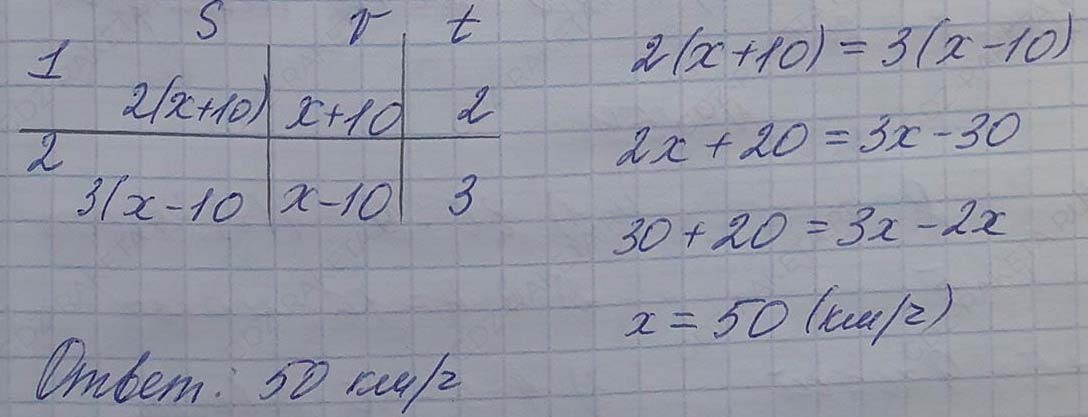 S v t
1
2(x+10) x+10 2
2
3(x-10 x-10 3
2(x+10) = 3(x-10)
2x + 20 = 3x - 30
30 + 20 = 3x - 2x
x = 50 (км/г)
Ответ: 50 км/г